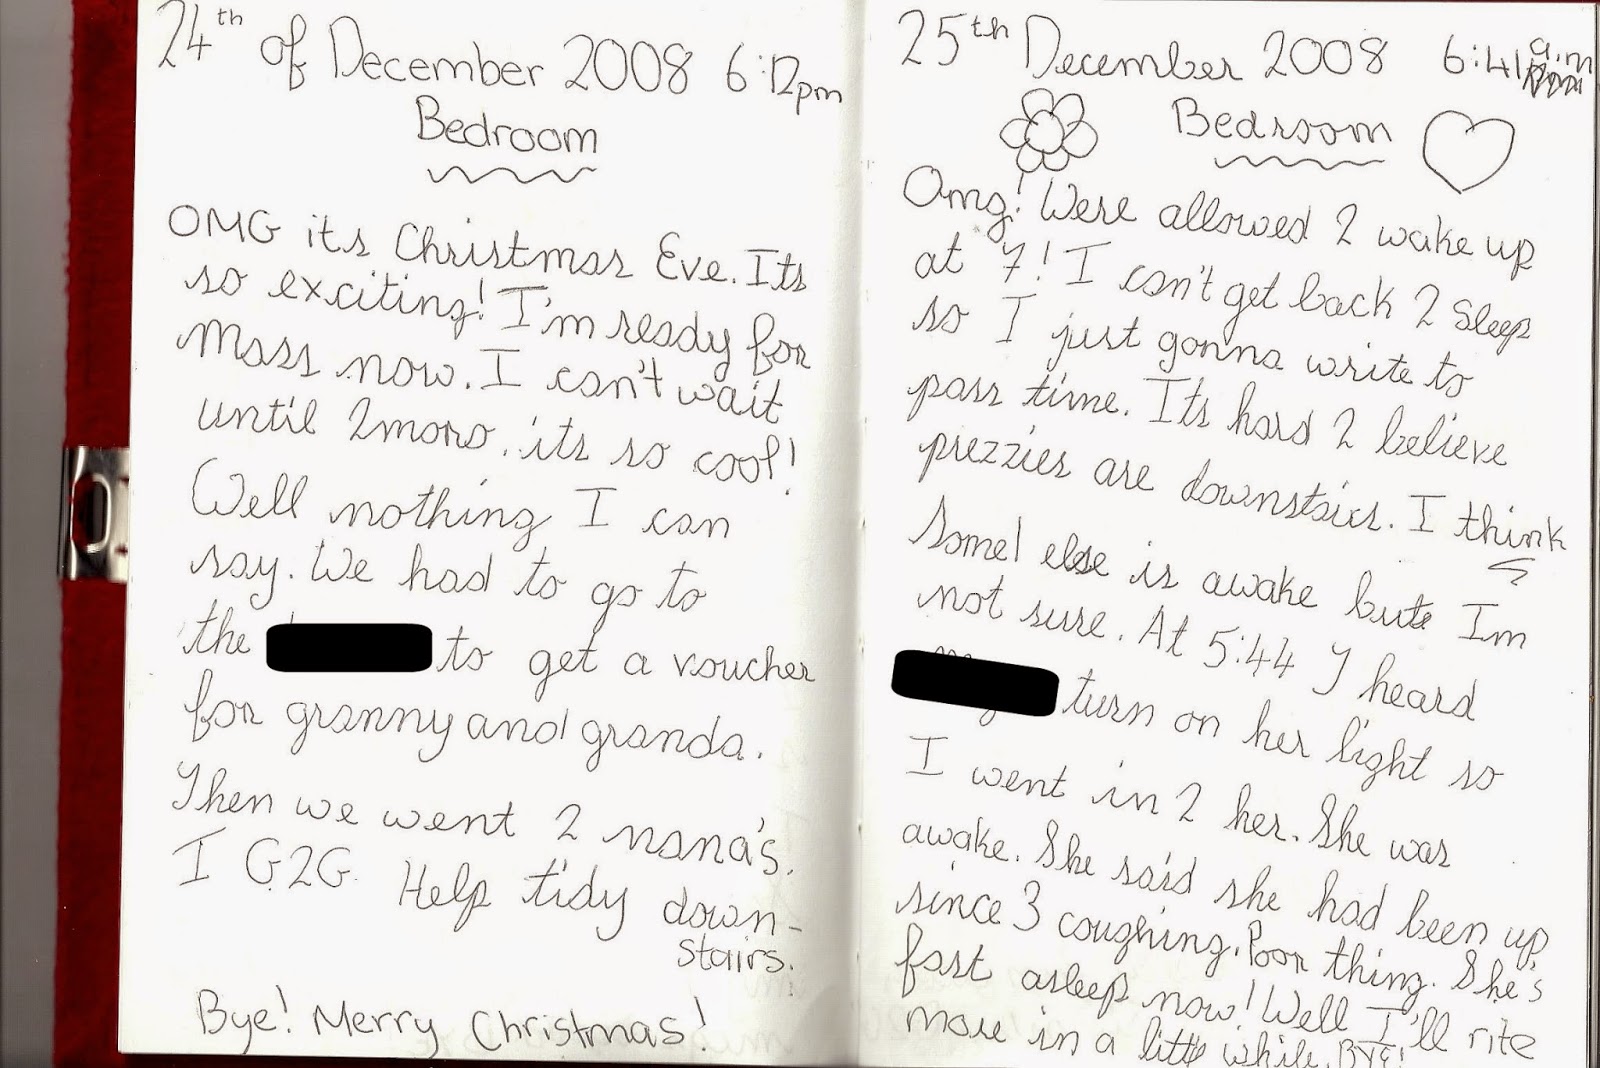 24th of December 2008 6:12pm
Bedroom
OMG its Christmas Eve. Its
so exciting! I'm ready for
Mass now. I can't wait
until 2moro, its so cool!
Well nothing I can
say. We had to go to
the to get a voucher
for granny and granda.
Then we went 2 nana's.
I G2G. Help tidy down-
stairs.
Bye! Merry Christmas!
25th December 2008 6:41 a.m
Bedroom
Omg! Were allowed 2 wake up
at 7! I can't get back 2 sleep
so I just gonna write to
pass time. Its hard 2 believe
prezzies are downstairs. I think
some1 else is awake but Im
not sure. At 5:44 I heard
turn on her light so
I went in 2 her. She was
awake. She said she had been up
since 3 coughing. Poor thing. She's
fast asleep now! Well I'll rite
more in a little while. BYE!